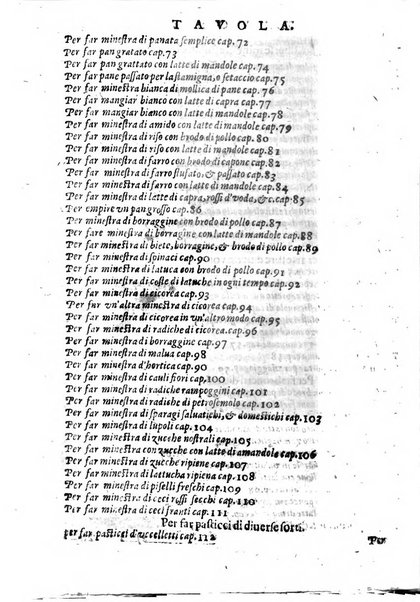 TAVOLA.
Per far minestra di panata semplice cap. 72
Per far pan gratato cap. 73
Per far pan gratato con latte di mandole cap. 74
Per far pane passato per la stamigna, o setaccio cap. 75
Per far minestra bianca di mollica di pane cap. 76
Per far mangiar bianco con latte di capra cap. 77
Per far mangiar bianco con latte di mandole cap. 78
Per far minestra di amido con latte di mandole cap. 79
Per far minestra di riso con brodo di pollo cap. 80
Per far minestra di riso con latte di mandole cap. 81
Per far minestra di farro con brodo di capone cap. 82
Per far minestra di farro stufato, & passato cap. 83
Per far minestra di farro con latte di mandole cap. 84
Per far minestra di latte di capra, rossi d'voda, & c. cap. 85
Per empire vn pan grosso cap. 86
Per far minestra di borraggine con brodo di pollo cap. 87
Per fare minestra di borraggine con latte di mandole cap. 88
Per far minestra di biete, borragine, & brodo di pollo cap. 89
Per far minestra di spinaci cap. 90
Per far minestra di latuca con brodo di pollo cap. 91
Per far minestra di coste di latuche in ogni tempo cap. 92
Per far minestra di cicorea cap. 93
Per fur vn'altra minestra di cicorea cap. 94
Per far minestra di cicorea in vn'altro modo cap. 95
Per far minestra di radiche di cicorea cap. 96
Per far minestra di borraggine cap. 97
Per far minestra di malua cap. 98
Per far minestra d'hortica cap. 90
Per far minestra di cauli fiori cap. 100
Per far minestra di radiche rampoggini cap. 101
Per far minestra di radiche di petrosemolo cap. 102
Per far minestra di sparagi saluatichi, & domestichi cap. 103
Per far minestra di lupoli cap. 104
Per far minestra di zucche nostrali cap. 105
Per far minestra con zucche con latte di amandole cap. 106
Per far minestra di zucche ripiene cap. 107
Per far minestra di laetucha ripiena cap. 108
Per far minestra di piselli freschi cap. 109
Per far minestra di ceci rossi secchi cap. 110
Per far minestra di ceci franti cap. 111
Per far pasticci di diuerse sorti.
per far pasticci d'vccelletti cap. 112
Per